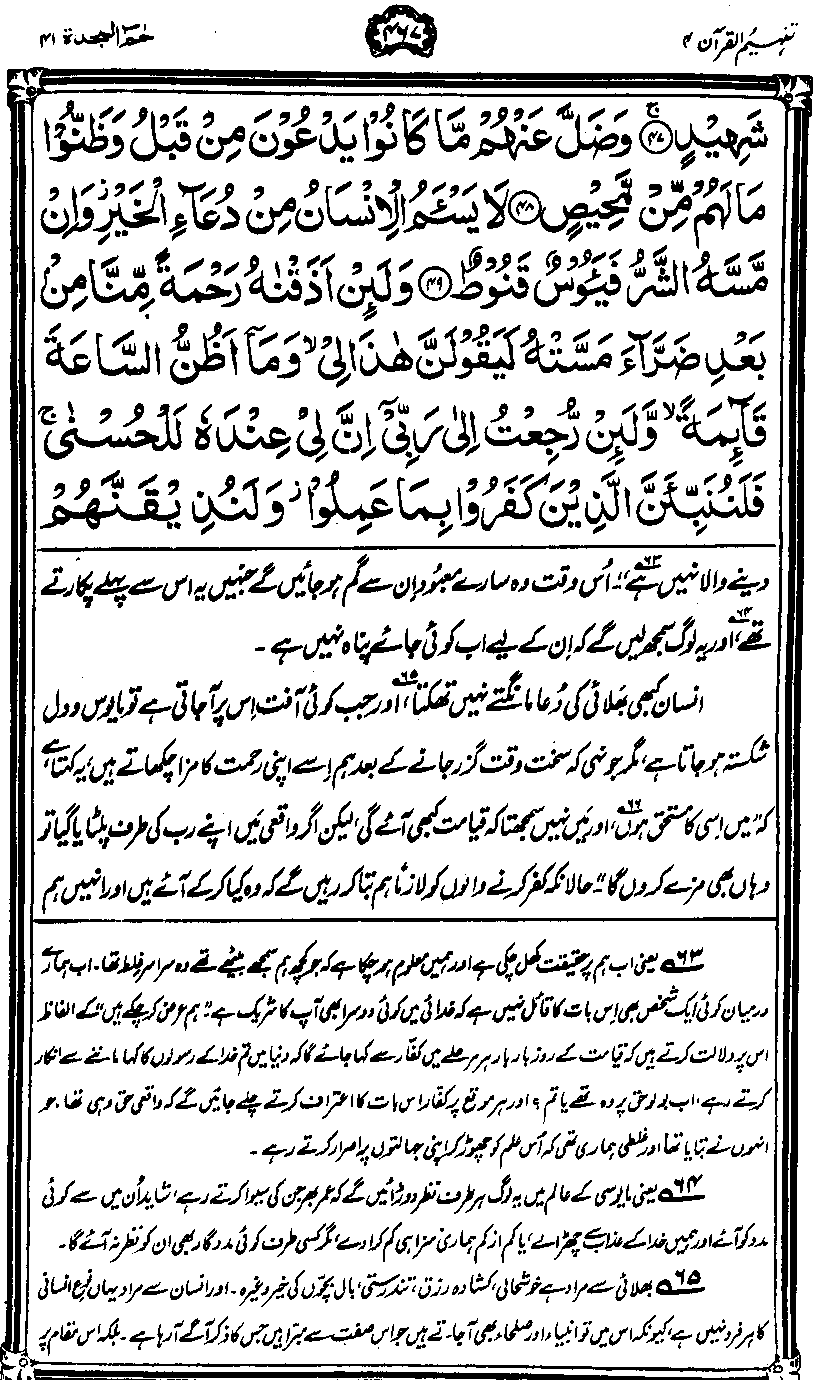 تفہیم القرآن ۴
۴۶۷
حٰمٓ السجدۃ ۴۱
شَهِيْدٍ ۚ﴿۴۷﴾ وَضَلَّ عَنْهُمْ مَّا كَانُوْا يَدْعُوْنَ مِنْ قَبْلُ وَظَنُّوْا
مَا لَهُمْ مِّنْ مَّحِيْصٍ ﴿۴۸﴾ لَا يَسْـَٔمُ الْاِنْسَانُ مِنْ دُعَآءِ الْخَيْرِ ۫ وَاِنْ
مَّسَّهُ الشَّرُّ فَيَـُٔوْسٌ قَنُوْطٌ ﴿۴۹﴾ وَلَئِنْ اَذَقْنٰهُ رَحْمَةً مِّنَّا مِنْۢ
بَعْدِ ضَرَّآءَ مَسَّتْهُ لَيَقُوْلَنَّ هٰذَا لِيْ ۙ وَمَاۤ اَظُنُّ السَّاعَةَ
قَآئِمَةً ۙ وَّلَئِنْ رُّجِعْتُ اِلٰى رَبِّيْۤ اِنَّ لِيْ عِنْدَهٗ لَلْحُسْنٰى ۚ
فَلَنُنَبِّئَنَّ الَّذِيْنَ كَفَرُوْا بِمَا عَمِلُوْا ؗ وَلَنُذِيْقَنَّهُمْ
دینے والا نہیں ہے۶۳“۔ اُس وقت وہ سارے معبُود اِن سے گم ہو جائیں گے جنہیں یہ اس سے پہلے پکارتے
تھے۶۴، اور یہ لوگ سمجھ لیں گے کہ اِن کے لیے اب کوئی جائے پناہ نہیں ہے۔
انسان کبھی بھَلائی کی دُعا مانگتے نہیں تھکتا۶۵، اور جب کوئی آفت اِس پر آجاتی ہے تو مایوس و دل
شکستہ ہو جاتا ہے، مگر جونہی کہ سخت وقت گزر جانے کے بعد ہم اِسے اپنی رحمت کا مزا چکھاتے ہیں، یہ کہتا ہے
کہ ”میں اِسی کا مستحق ہوں۶۶، اور میں نہیں سمجھتا کہ قیامت کبھی آئے گی، لیکن اگر واقعی میَں اپنے رب کی طرف پلٹایا گیا تو
وہاں بھی مزے کروں گا“۔ حالانکہ کفر کرنے والوں کو لازمًا ہم بتا کر رہیں گے کہ وہ کیا کر کے آئے ہیں اور انہیں ہم
۶۳ یعنی اب ہم پر حقیقت کھل چکی ہے اور ہمیں معلوم ہو چکا ہے کہ جو کچھ ہم سمجھے بیٹھے تھے وہ سراسر غلط تھا۔ اب ہمارے
درمیان کوئی ایک شخص بھی اِس بات کا قائل نہیں ہے کہ خدائی میں کوئی دوسرا بھی آپ کا شریک ہے۔ ”ہم عرض کر چکے ہیں“ کے الفاظ
اس پر دلالت کرتے ہیں کہ قیامت کے روز بار بار ہر مرحلے میں کفّار سے کہا جائے گا کہ دنیا میں تم خدا کے رسولوں کا کہا ماننے سے انکار
کرتے رہے، اب بولو حق پر وہ تھے یا تم ؟ اور ہر موقع پر کفار اس بات کا اعتراف کرتے چلے جائیں گے کہ واقعی حق وہی تھا جو
انہوں نے بتایا تھا اور غلطی ہماری تھی کہ اُس علم کو چھوڑ کر اپنی جہالتوں پر اصرار کرتے رہے۔
۶۴ یعنی مایوسی کے عالم میں یہ لوگ ہر طرف نظر دوڑائیں گے کہ عمر بھر جن کی سیوا کرتے رہے، شاید اُن میں سے کوئی
مدد کو آئے اور ہمیں خدا کے عذاب سے چھڑا لے، یا کم از کم ہماری سزا ہی کم کرا دے، مگر کسی طرف کوئی مددگار بھی ان کو نظر نہ آئے گا۔
۶۵ بھلائی سے مراد ہے خوشحالی، کشادہ رزق، تندرستی، بال بچّوں کی خیر وغیرہ۔ اور انسان سے مراد یہاں نوعِ انسانی
کا ہر فرد نہیں ہے، کیونکہ اس میں تو انبیاء اور صلحاء بھی آجاتے ہیں جو اس صفت سے مبرا ہیں جس کا ذکر آگے آ رہا ہے۔ بلکہ اس مقام پر